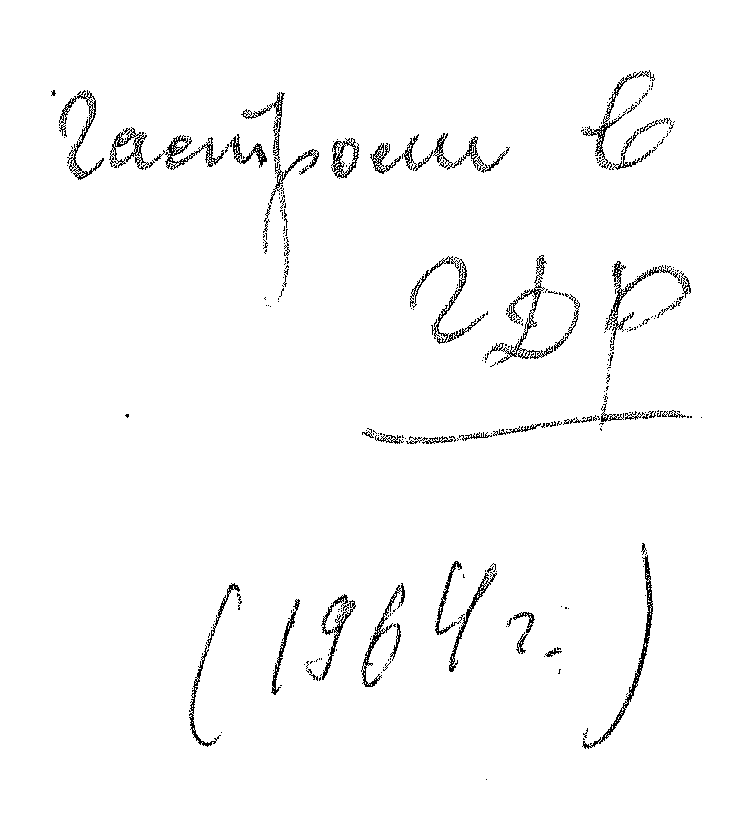 Гастроли в
ГДР
(1964 г.)